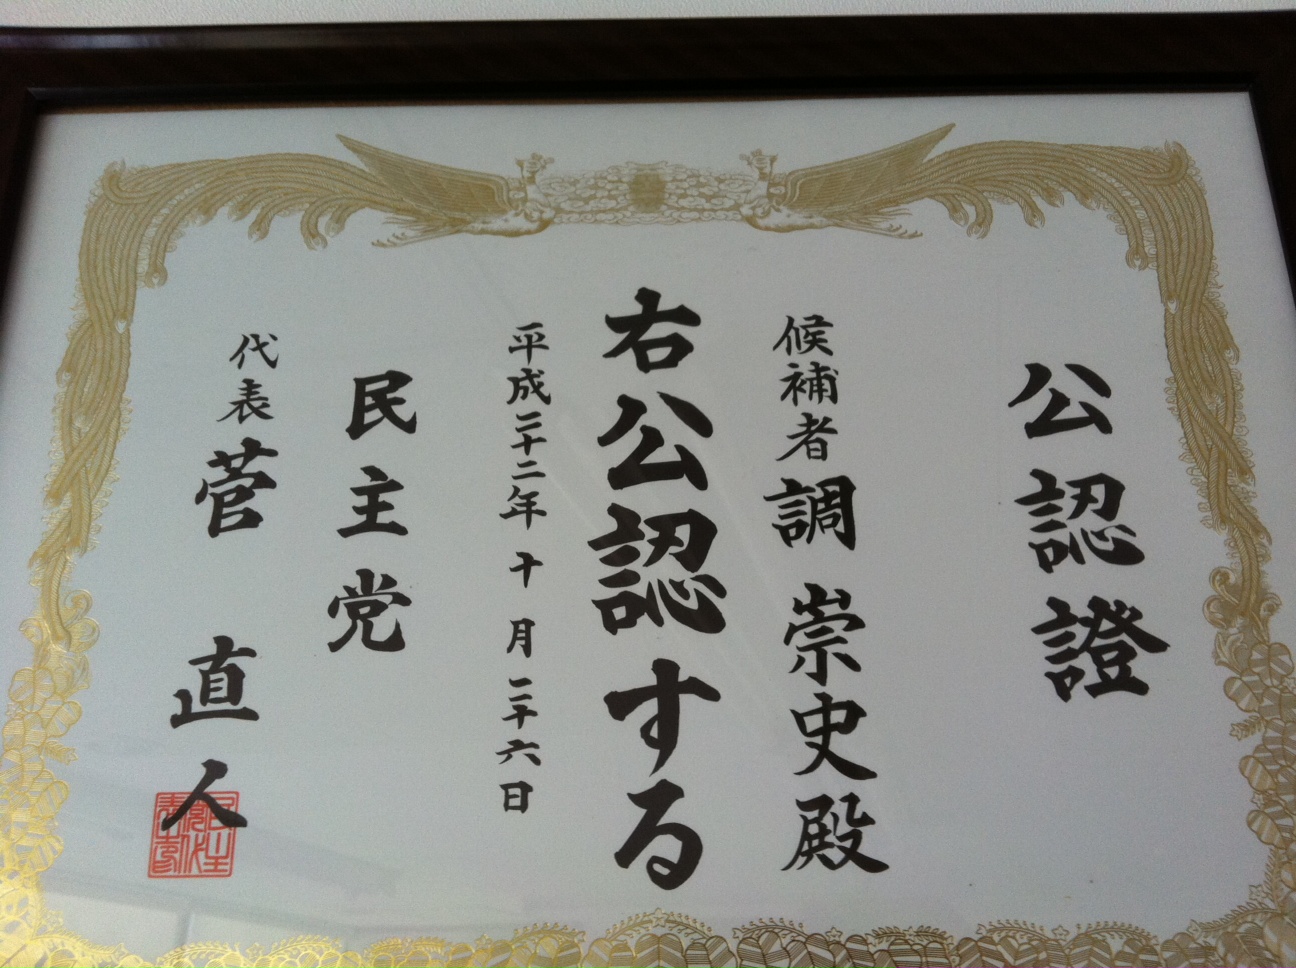 公認證
候補者 調 崇史殿
右公認する
平成二十二年十月二十六日
民主党
代表 菅 直人